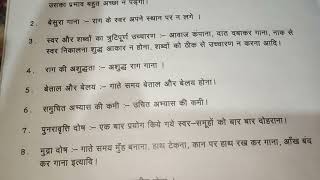 उसका प्रभाव बहुत अच्छा न पड़ेगा।
2. बेसुरा गाना :– राग के स्वर अपने स्थान पर न लगे ।
3. स्वर और शब्दों का त्रुटिपूर्ण उच्चारण :– आवाज कंपाना, दांत दबाकर गाना, नाक से
स्वर निकालना शुद्ध आकार न होना, शब्दों को ठीक से उच्चारण न करना आदि।
4. राग की अशुद्धता :– अशुद्ध राग गाना ।
5. बेताल और बेलय :– गाते समय बेताल और बेलय होना।
6. समुचित अभ्यास की कमी :– उचित अभ्यास की कमी।
7. पुनरावृत्ति दोष :– एक बार प्रयोग किये गये स्वर–समूहों को बार बार दोहराना।
8. मुद्रा दोष :– गाते समय मुँह बनाना, हाथ टेकना, कान पर हाथ रख कर गाना, आँख बंद
कर गाना इत्यादि।